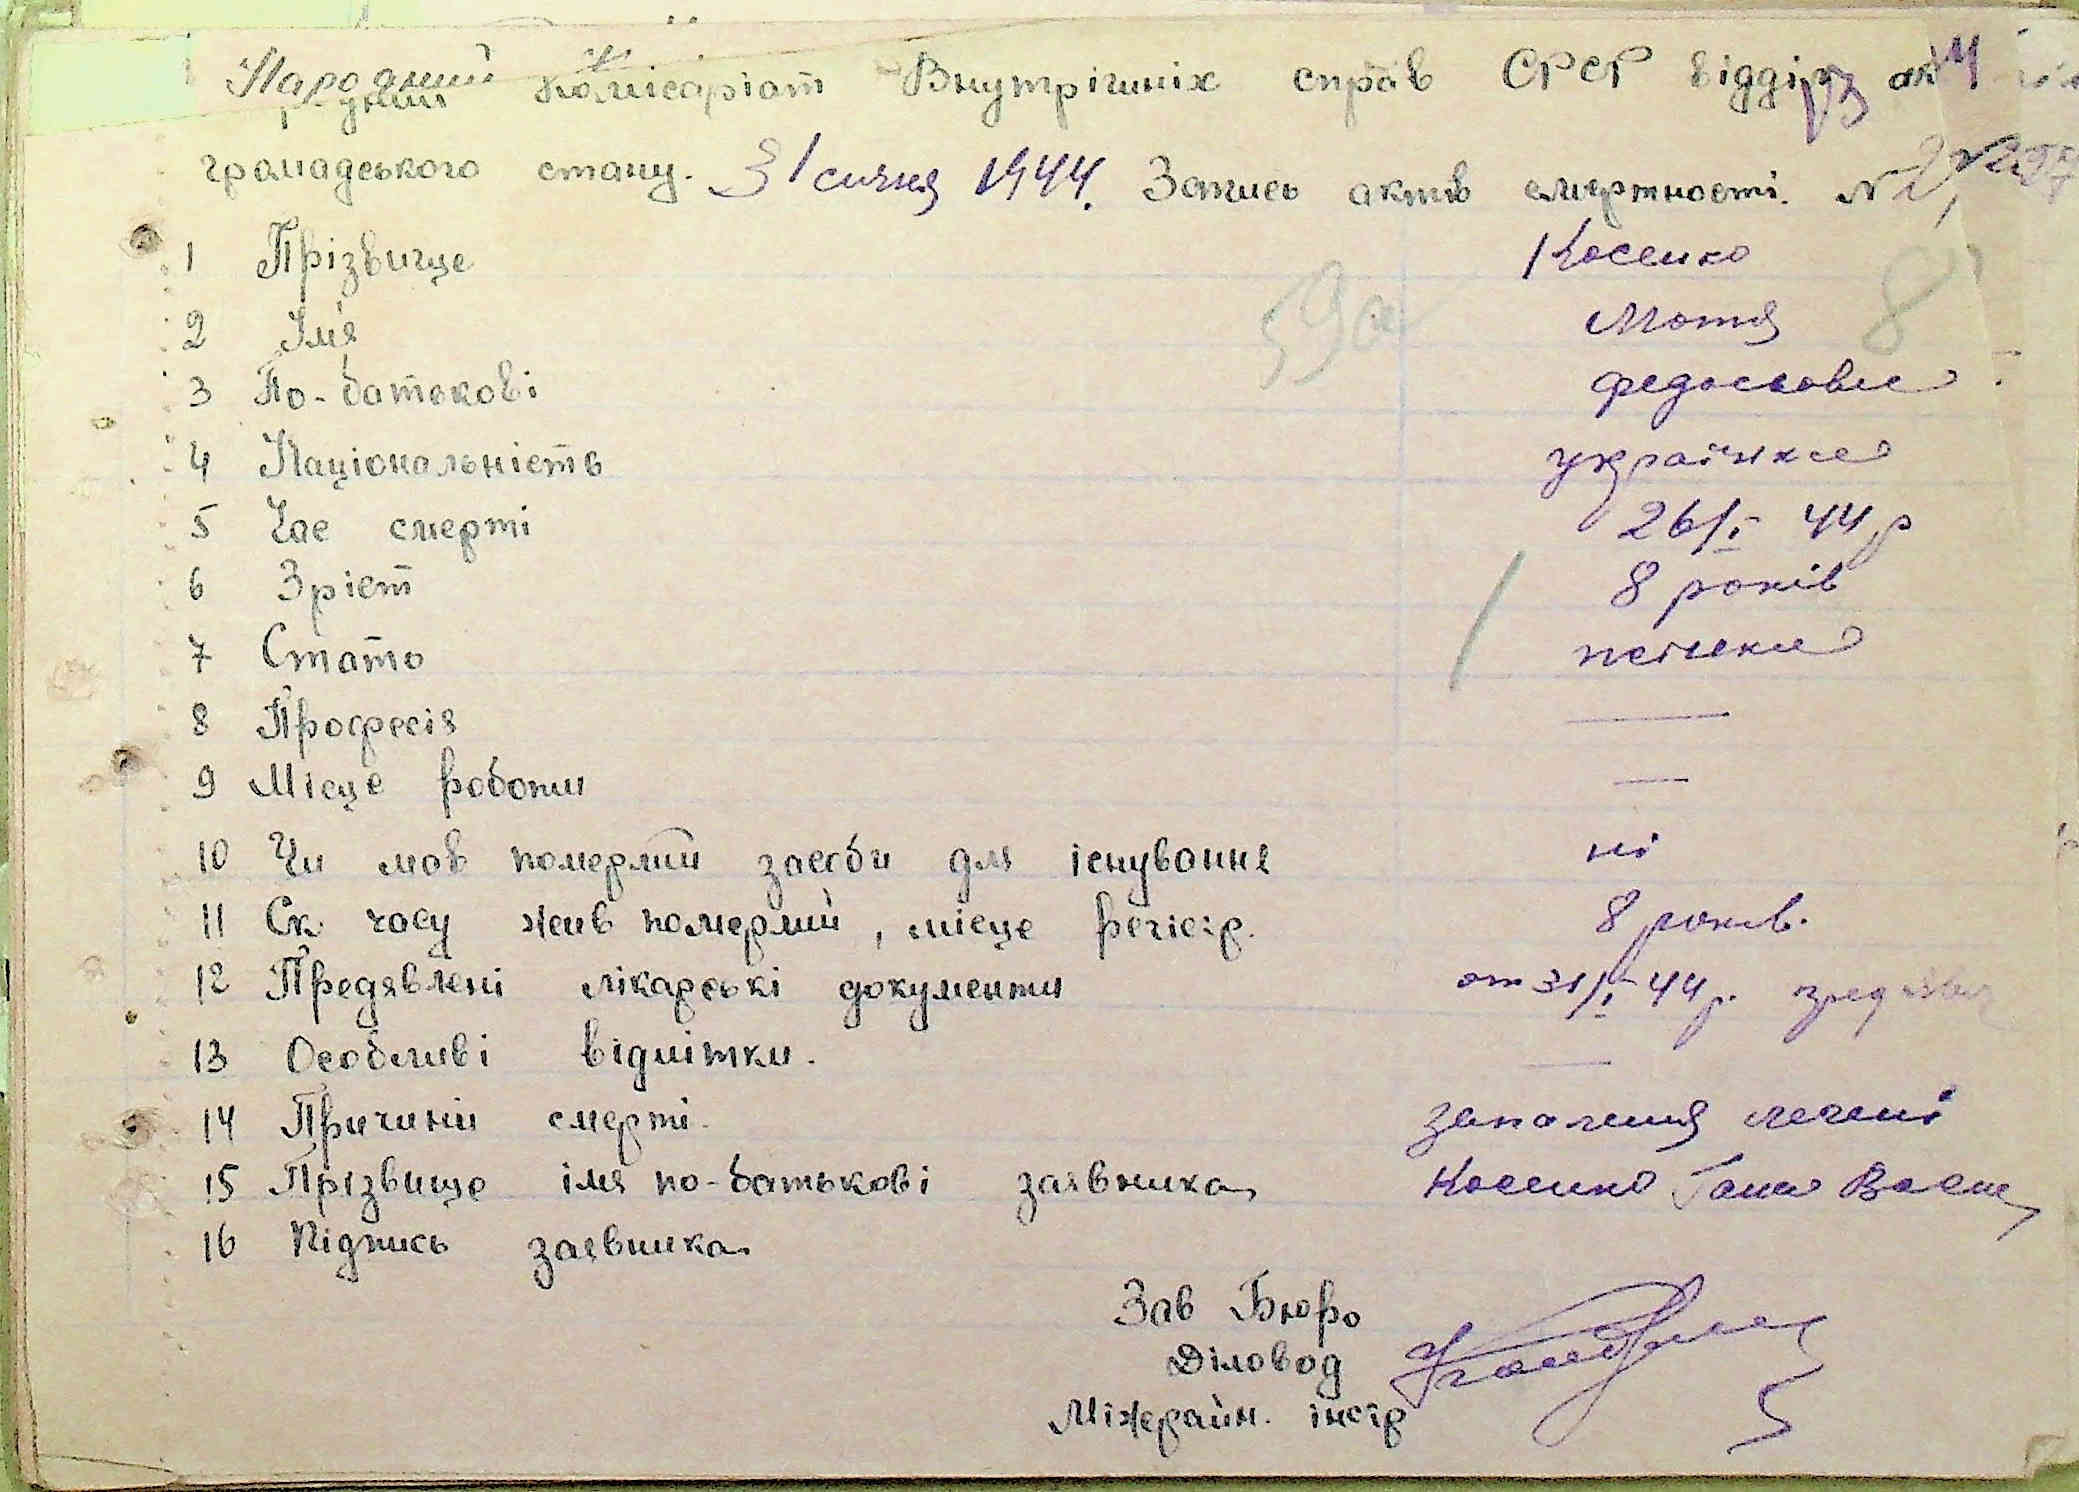 Народний Комісаріат Внутрішніх справ СРСР відділ
громадського стану. 31 січня 1944. Запись актів смертності. N 2
1 Прізвище Косенко
59а 8
2 Імя Мотя
3 По-батькові Федосьовна
4 Національність українка
5 Час смерті 26/I 44 р
6 Зріст 8 років
7 Стать жіноча
8 Професія —
9 Місце роботи —
10 Чи мав померлий засоби для існування ні
11 Ск часу жив померлий, місце регістр. 8 років.
12 Предявлені лікарські документи от 31/I 44 р.
13 Особливі відмітки. —
14 Причини смерті. запалення легені
15 Прізвище імя по-батькові заявника Косенко Ганна Васил
16 Підпись заявника
Зав Бюро
Діловод
Міжрайн. інстр